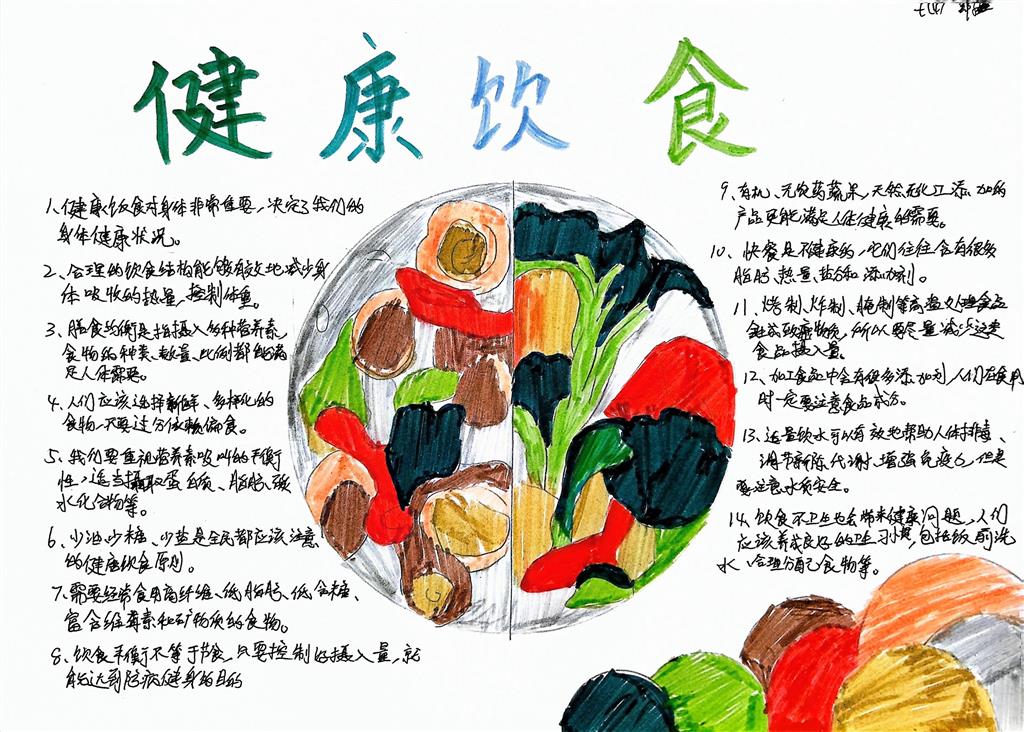 七(4)
健康饮食
1、健康饮食对身体非常重要，决定了我们的
身体健康状况。
2、合理的饮食结构能够有效地减少身
体吸收的热量，控制体重。
3、膳食均衡是指摄入多种营养素，
食物的种类、数量、比例都能满
足人体需要。
4、人们应该选择新鲜、多样化的
食物，不要过分依赖偏食。
5、我们要重视营养素吸收的平衡
性，适当摄取蛋白质、脂肪、碳
水化合物等。
6、少油少糖、少盐是全民都应该注意
的健康饮食原则。
7、需要经常食用高纤维、低脂肪、低含糖、
富含维生素和矿物质的食物。
8、饮食平衡不等于节食，只要控制好摄入量，就
能达到防病健身的目的
9、有机、无农药蔬果，天然无化工添加的
产品更能满足人体健康的需要。
10、快餐是不健康的，它们往往含有很多
脂肪、热量、盐分和添加剂。
11、烤制、炸制、腌制等高温处理食品
会致癌物质，所以要尽量减少这类
食品摄入量。
12、加工食品中含有很多添加剂，人们在食用
时一定要注意食品成分。
13、适量饮水可以有效地帮助人体排毒、
调节新陈代谢、增强免疫力，但是
要注意水质安全。
14、饮食不卫生也会带来健康问题，人们
应该养成良好的卫生习惯，包括饭前洗
水、合理分配食物等。